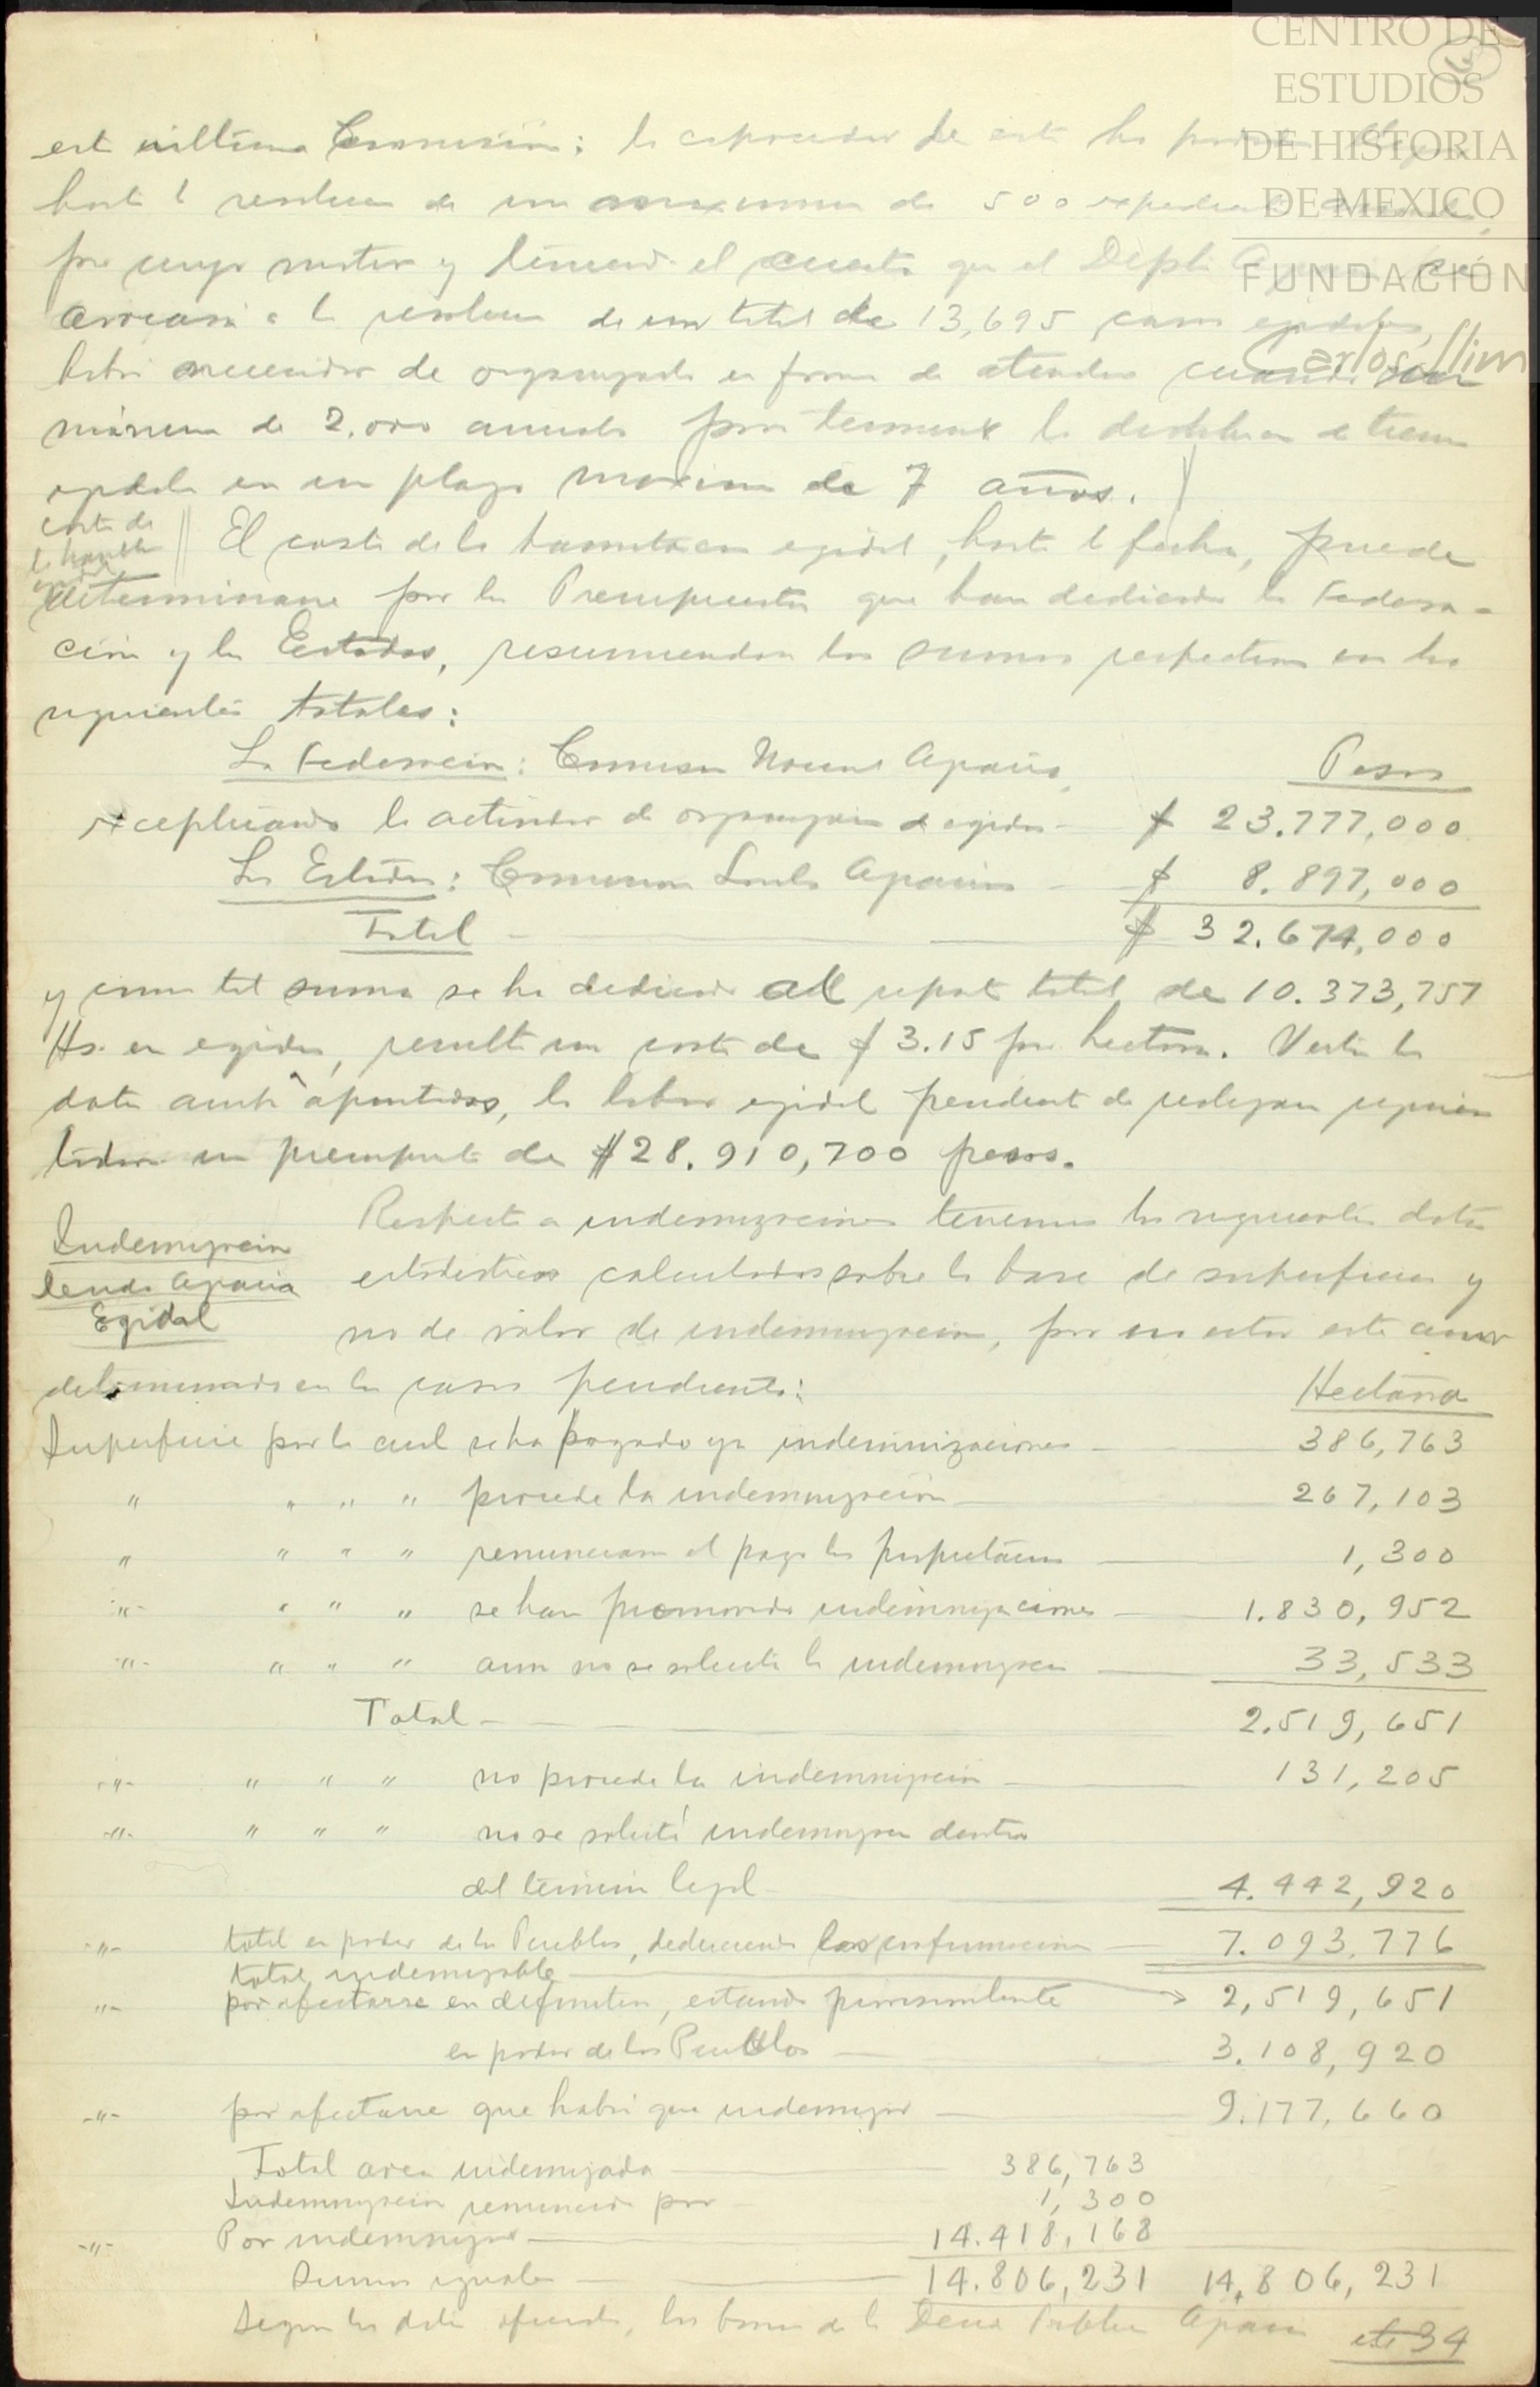 CENTRO DE
ESTUDIOS
DE HISTORIA
DE MEXICO
FUNDACIÓN
Carlos Slim
est última Comisión; la capacidad de est ha podido llegar
hasta la resolucion de un maximum de 500 expedientes anuales,
por cuyo motivo y teniendo el cuenta que el Depto Agrario se
avocara a la resolucion de un total de 13,695 casos ejidales,
habrá necesidad de organizarlo en forma de atender cuando
minimo de 2.000 anuales para terminar la de tierras
ejidales en un plazo maximo de 7 años.
costo de
la tramit
ejidal
El costo de la tramitacion ejidal, hasta la fecha, puede
determinarse por los Presupuestos que han dedicado la Federa-
ción y los Estados, resumiendo las sumas respectivas en los
siguientes totales:
La Federación: Comision Nacional Agraria, Pesos
exceptuando la actividad de organización de ejidos - $ 23.777,000
Los Estados: Comisiones Locales Agrarias - $ 8.897,000
Total - $ 32.674,000
y como tal suma se ha dedicado al reparto total de 10.373,757
Hs. en ejidos, resulta un costo de $ 3.15 por hectárea. Vistos los
datos antes apuntados, la labor ejidal pendiente de realizar
un presupuesto de $28.910,700 pesos.
Indemnización
deuda Agraria
Egidal
Respecto a indemnizaciones tenemos los siguientes datos
estadisticos calculados sobre la base de superficies y
no de valor de indemnización, por no estar este aun
determinado en los casos pendientes: Hectárea
Superficie por la cual se ha pagado ya indemnizaciones - 386,763
" " " " procede la indemnización - 267,103
" " " " renunciaron el pago los propietarios - 1,300
-"- " " " se han promovido indemnizaciones - 1.830,952
-"- " " " aun no se solicita la indemnizacion - 33,533
Total - 2.519,651
-"- " " " no procede la indemnización - 131,205
-"- " " " no se solicitó indemnizacion dentro
del término legal - 4.442,920
-"- total en poder de los Pueblos, deduciendo las confirmaciones - 7.093,776
total indemnizable
-"- por afectarse en definitiva, estando provisionalmente → 2,519,651
en poder de los Pueblos - 3.108,920
-"- por afectarse que habrá que indemnizar - 9.177,660
Total area indemnizada - 386,763
Indemnización renunciada por - 1,300
-"- Por indemnizar - 14.418,168
Sumas iguales - 14.806,231 14,806,231
Segun los datos oficiales, los bonos de la Deuda Publica Agraria etc 34